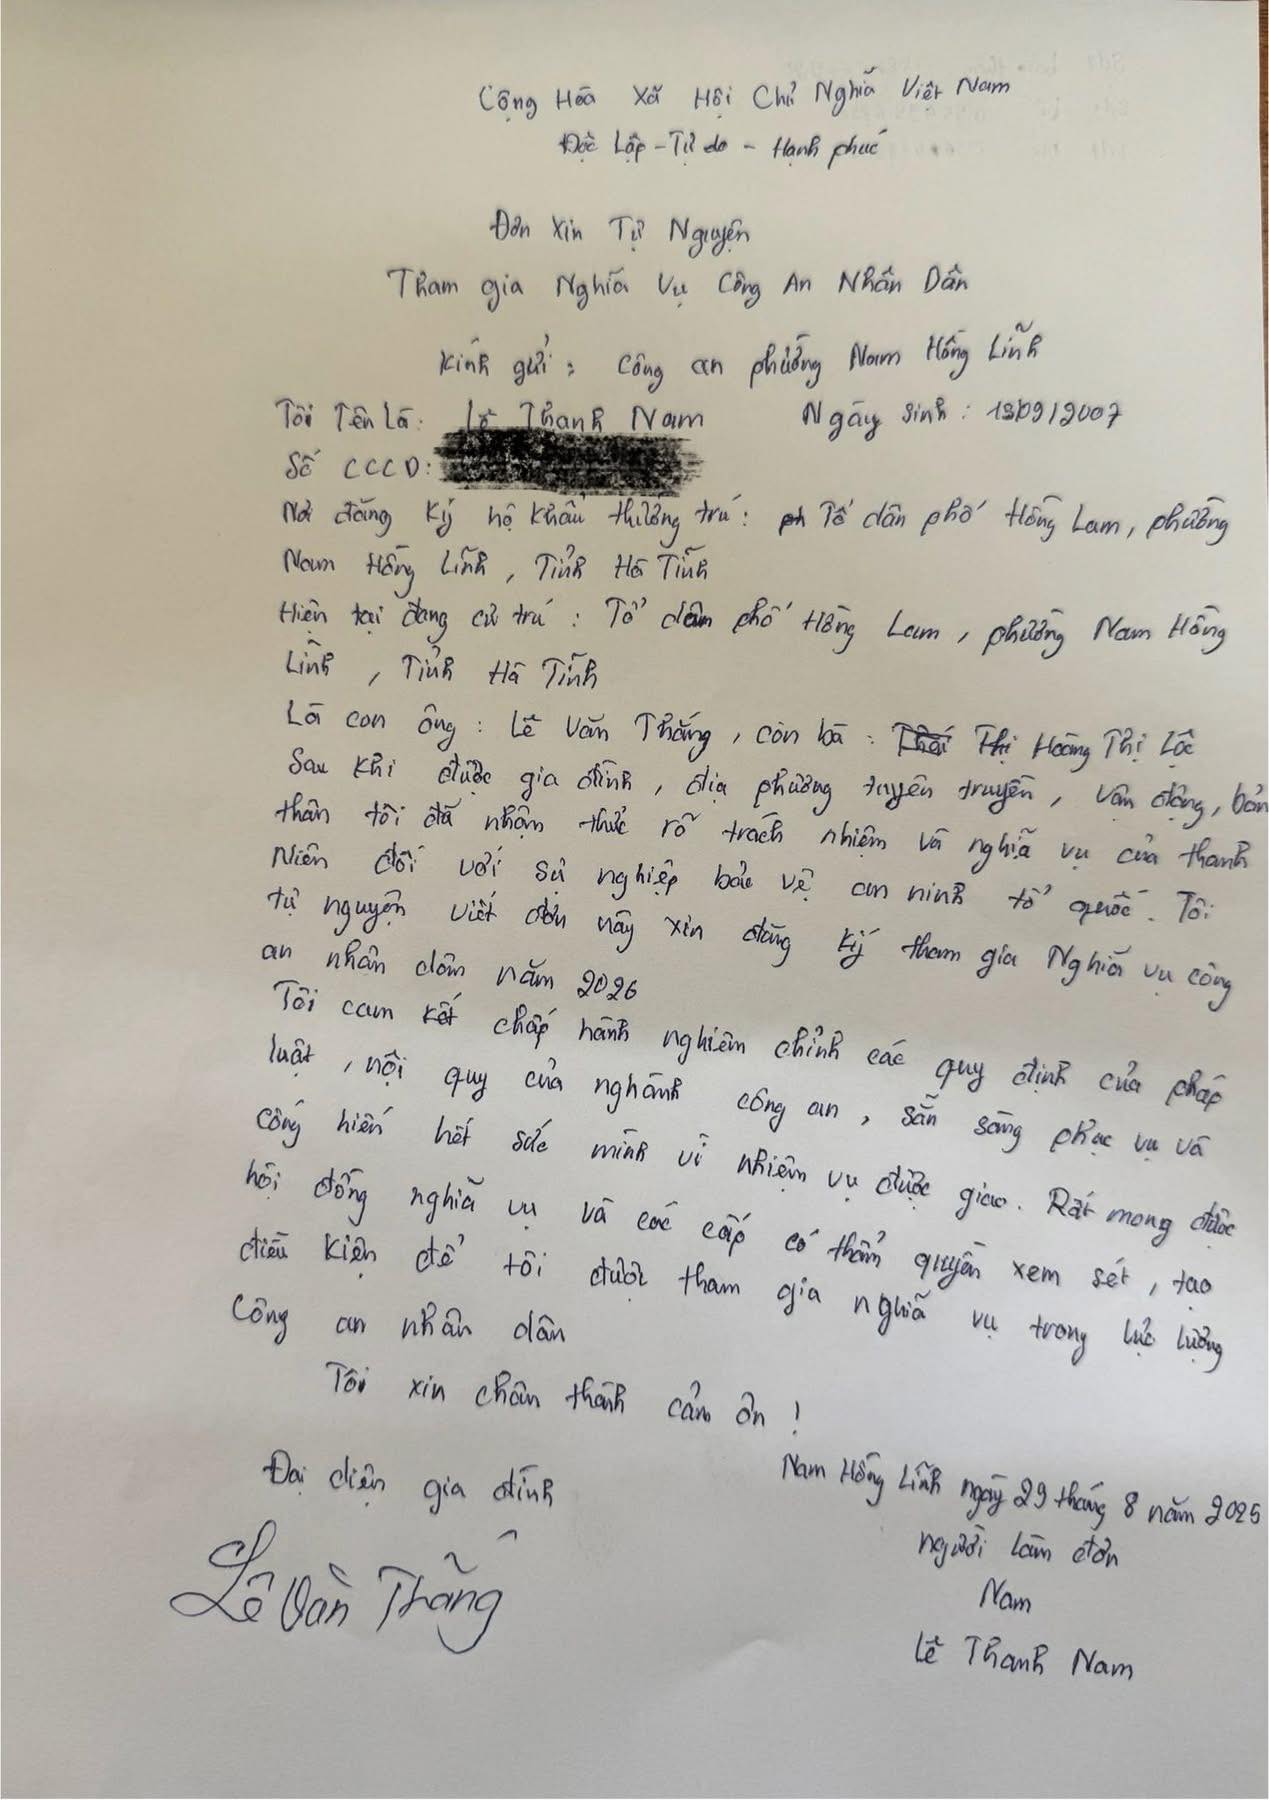 Cộng Hòa Xã Hội Chủ Nghĩa Việt Nam
Độc Lập - Tự do - Hạnh phúc
Đơn Xin Tự Nguyện
Tham gia Nghĩa Vụ Công An Nhân Dân
Kính gửi : Công an phường Nam Hồng Lĩnh
Tôi Tên Là: Lê Thanh Nam Ngày sinh : 13/09/2007
Số CCCD:
Nơi đăng ký hộ khẩu thường trú : Tổ dân phố Hồng Lam, phường
Nam Hồng Lĩnh, Tỉnh Hà Tĩnh
Hiện tại đang cư trú : Tổ dân phố Hồng Lam, phường Nam Hồng
Lĩnh, Tỉnh Hà Tĩnh
Là con ông : Lê Văn Thắng, còn bà : Hoàng Thị Lộc
Sau khi được gia đình, địa phương tuyên truyền, vận động, bản
thân tôi đã nhận thức rõ trách nhiệm và nghĩa vụ của thanh
Niên đối với sự nghiệp bảo vệ an ninh tổ quốc. Tôi
tự nguyện viết đơn này xin đăng ký tham gia Nghĩa vụ công
an nhân dân năm 2026
Tôi cam kết chấp hành nghiêm chỉnh các quy định của pháp
luật, nội quy của nghành công an, sẵn sàng phục vụ và
cống hiến hết sức mình vì nhiệm vụ được giao. Rất mong được
hội đồng nghĩa vụ và các cấp có thẩm quyền xem sét, tạo
điều kiện để tôi được tham gia nghĩa vụ trong lực lượng
Công an nhân dân
Tôi xin chân thành cảm ơn !
Đại diện gia đình
Nam Hồng Lĩnh ngày 29 tháng 8 năm 2025
người làm đơn
Nam
Lê Văn Thắng
Lê Thanh Nam